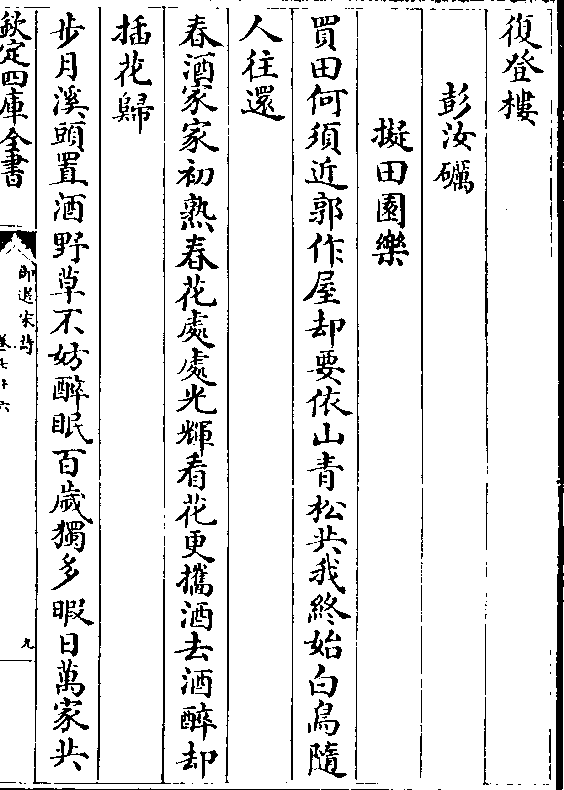 復登樓
彭汝礪
擬田園樂
買田何須近郭作屋却要依山青松共我終始白鳥隨
人往還
春酒家家初熟春花處處光輝看花更攜酒去酒醉却
插花歸
步月溪頭置酒野草不妨醉眠百歲獨多暇日萬家共
欽定四庫全書
御選宋詩
卷七十六
九